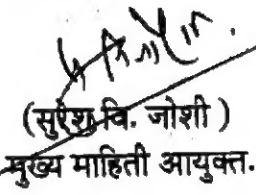 (सुरेश वि. जोशी )
मुख्य माहिती आयुक्त.